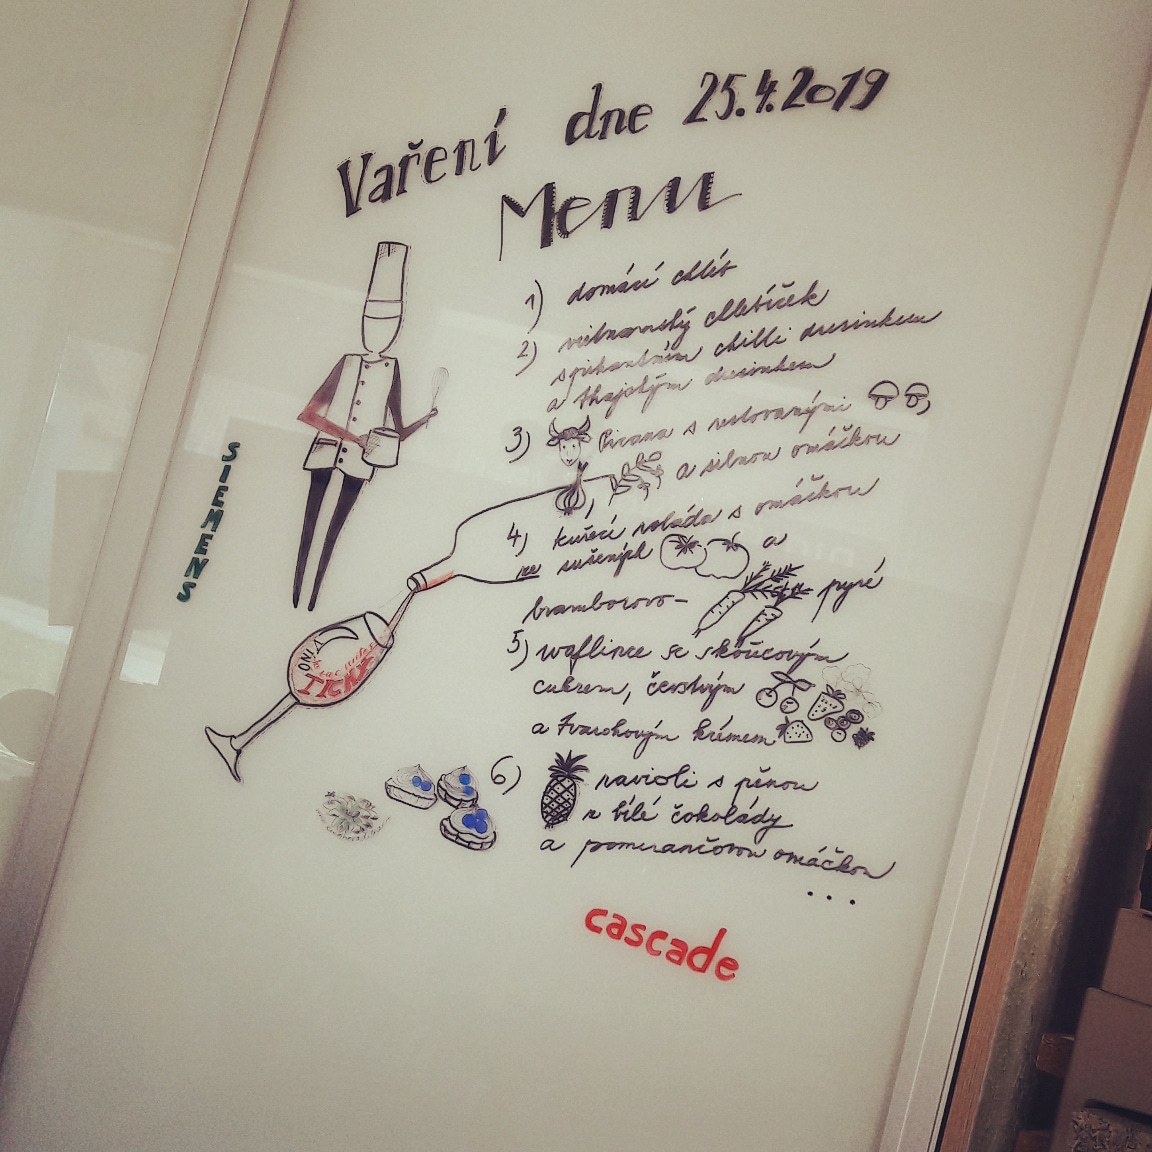 Vaření dne 25.4.2019
Menu
1) domácí chléb
2) vietnamský chlebíček
s pikantním chilli dresinkem
a thajským dresinkem
3) Picana s restovanými
, a silnou omáčkou
4) kuřecí roláda s omáčkou
ze sušených a
bramborovo- pyré
5) waflince se skořicovým
cukrem, čerstvým
a tvarohovým krémem
6) ravioli s pěnou
z bílé čokolády
a pomerančovou omáčkou
...
SIEMENS
VÍNO
cascade